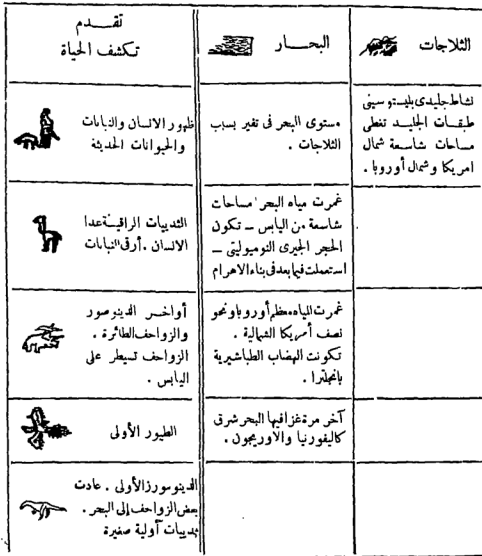 الثلاجات
البحـــار
تقـــدم
تكشف الحياة
نشاط جليدى بليستوسينى
طبقات الجليد تغطى
مساحات شاسعة شمال
امريكا وشمال أوروبا .
مستوى البحر فى تغير بسبب
الثلاجات .
ظهور الانسان والنباتات
والحيوانات الحديثة
غمرت مياه البحر مساحات
شاسعة من اليابس ــ تكون
الحجر الجيرى النوميوليتى ــ
استعملت فيها بعد فى بناء الاهرام
الثدييات الراقيــة عدا
الانسان . أرقى النباتات
غمرت المياه معظم أوروبا ونحو
نصف أمريكا الشمالية .
تكونت الهضاب الطباشيرية
بانجلترا .
أواخــر الدينوصور
والزواحف الطائرة .
الزواحف تسيطر على
اليابس .
آخر مرة غزا فيها البحر شرق
كاليفورنيا والاوريجون .
الطيور الأولى
الدينوسورز الأولى . عادت
بعض الزواحف إلى البحر .
ثدييات أولية صغيرة